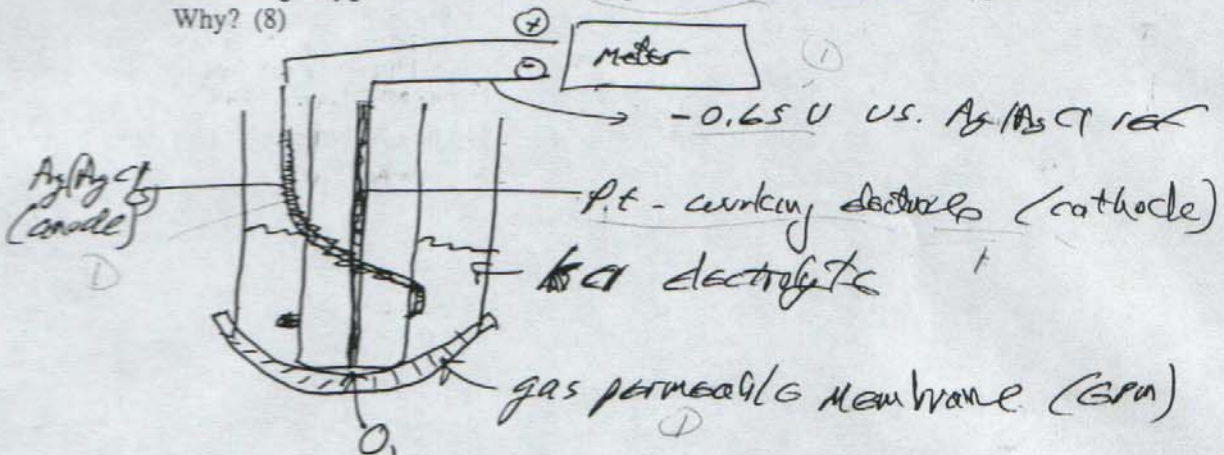 Why? (8)
+
Meter
-
①
-0.65 V vs. Ag/AgCl ref
Ag/AgCl
(anode)
①
Pt - working electrode (cathode)
1
KCl electrolyte
gas permeable Membrane (GPM)
①
O